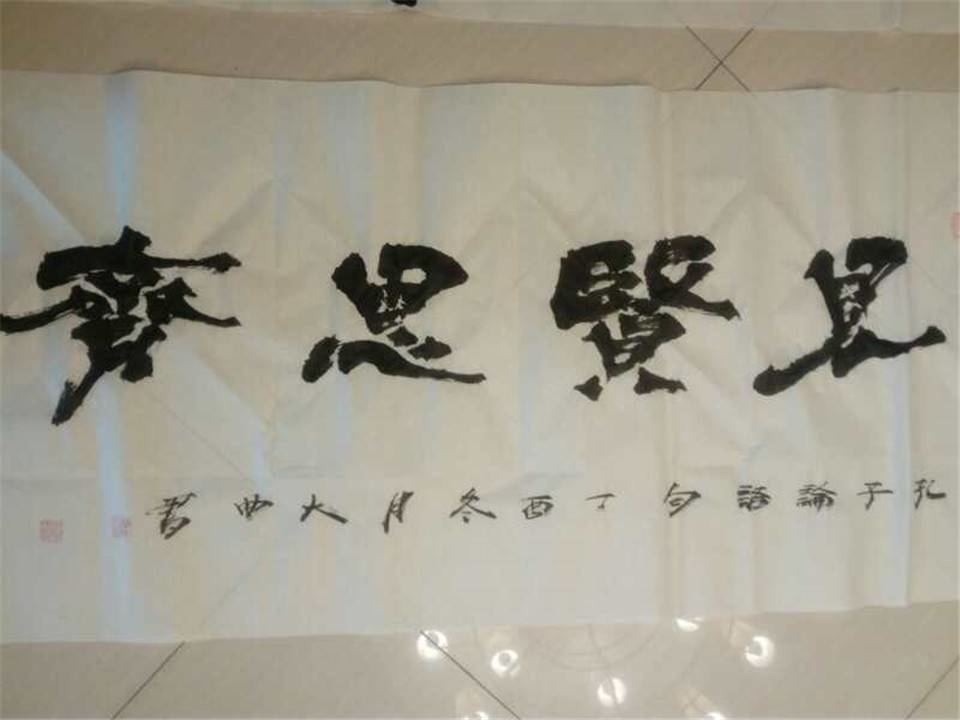 見賢思齊
孔子論語句丁酉冬月大曲書